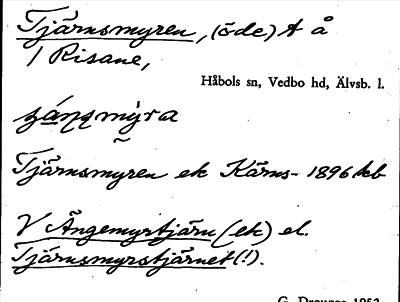 Tjärnsmyren, (öde) t å
/ Risane,
Håbols sn, Vedbo hd, Älvsb. l.
Tjärnsmyren ek Kärns- 1896 kb
V Ängemyrstjärn (ek) el.
Tjärnsmyrstjärnet (!).